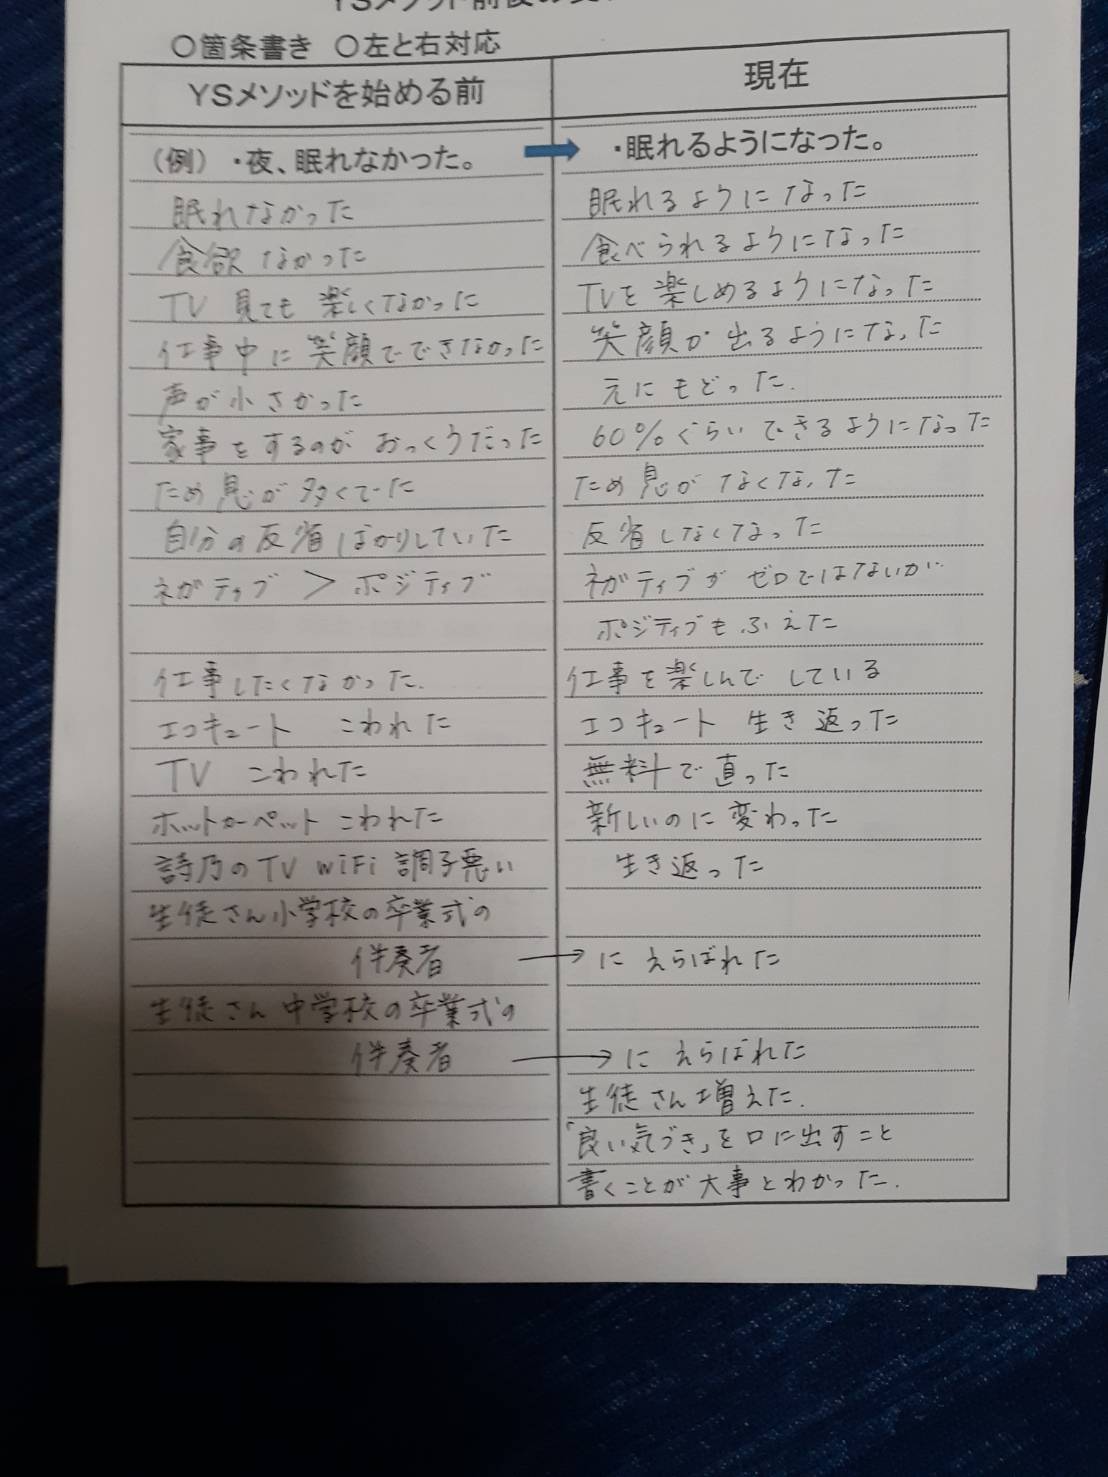 YSメソッド前後の変
○箇条書き ○左と右対応
YSメソッドを始める前 現在
(例) ・夜、眠れなかった。 ・眠れるようになった。
眠れなかった 眠れるようになった
食欲なかった 食べられるようになった
TV 見ても 楽しくなかった TVを楽しめるようになった
仕事中に 笑顔でできなかった 笑顔が出るようになった
声が小さかった 元にもどった.
家事をするのが おっくうだった 60%ぐらいできるようになった
ため息が多くでた ため息がなくなった
自分の反省ばかりしていた 反省しなくなった
ネガティブ > ポジティブ ネガティブが ゼロではないが
ポジティブもふえた
仕事したくなかった. 仕事を楽しんでしている
エコキュート こわれた エコキュート 生き返った
TV こわれた 無料で直った
ホットカーペット こわれた 新しいのに変わった
詩乃のTV WiFi 調子悪い 生き返った
生徒さん小学校の卒業式の
伴奏者 → に えらばれた
生徒さん 中学校の卒業式の
伴奏者 → に えらばれた
生徒さん増えた.
「良い気づき」を口に出すこと
書くことが大事とわかった.